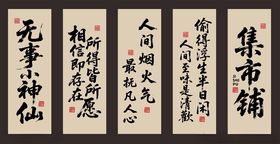 集市铺
偷得浮生半日闲
人间至味是清歡
人间烟火气
最抚凡人心
所得皆所愿
相信即存在
无事小神仙